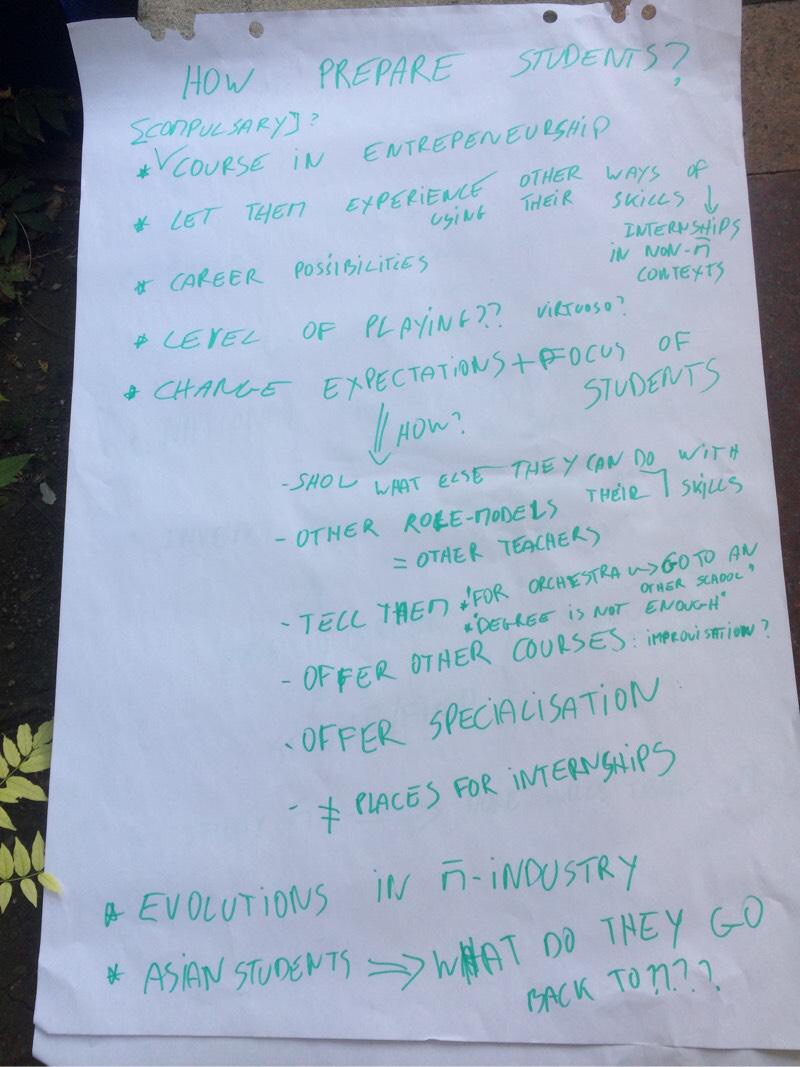 HOW PREPARE STUDENTS?
[COMPULSARY]?
* COURSE IN ENTREPENEURSHIP
* LET THEM EXPERIENCE OTHER WAYS OF
USING THEIR SKILLS ↓
INTERNSHIPS
IN NON-m̄
CONTEXTS
* CAREER POSSIBILITIES
* LEVEL OF PLAYING?? VIRTUOSO?
* CHANGE EXPECTATIONS + FOCUS OF
STUDENTS
⇓ HOW?
- SHOW WHAT ELSE THEY CAN DO WITH
THEIR SKILLS
- OTHER ROLE-MODELS
= OTHER TEACHERS
- TELL THEM * "FOR ORCHESTRA → GO TO AN
OTHER SCHOOL"
* "DEGREE IS NOT ENOUGH"
- OFFER OTHER COURSES: IMPROVISATION?
- OFFER SPECIALISATION
- ≠ PLACES FOR INTERNSHIPS
* EVOLUTIONS IN m̄-INDUSTRY
* ASIAN STUDENTS ⇒ WHAT DO THEY GO
BACK TO???